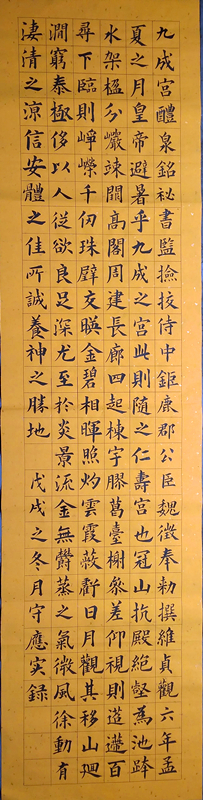 九成宮醴泉銘祕書監撿挍侍中鉅鹿郡公臣魏徵奉勑撰維貞觀六年孟
夏之月皇帝避暑乎九成之宮此則隨之仁壽宮也冠山抗殿絕壑為池跨
水架楹分巖竦闕高閣周建長廊四起棟宇膠葛臺榭參差仰視則迢遰百
尋下臨則崢嶸千仞珠璧交暎金碧相暉照灼雲霞蔽虧日月觀其移山迴
澗窮泰極侈以人從欲良足深尤至於炎景流金無欝蒸之氣微風徐動有
淒清之涼信安體之佳所誠養神之勝地 戊戌之冬月守應实録